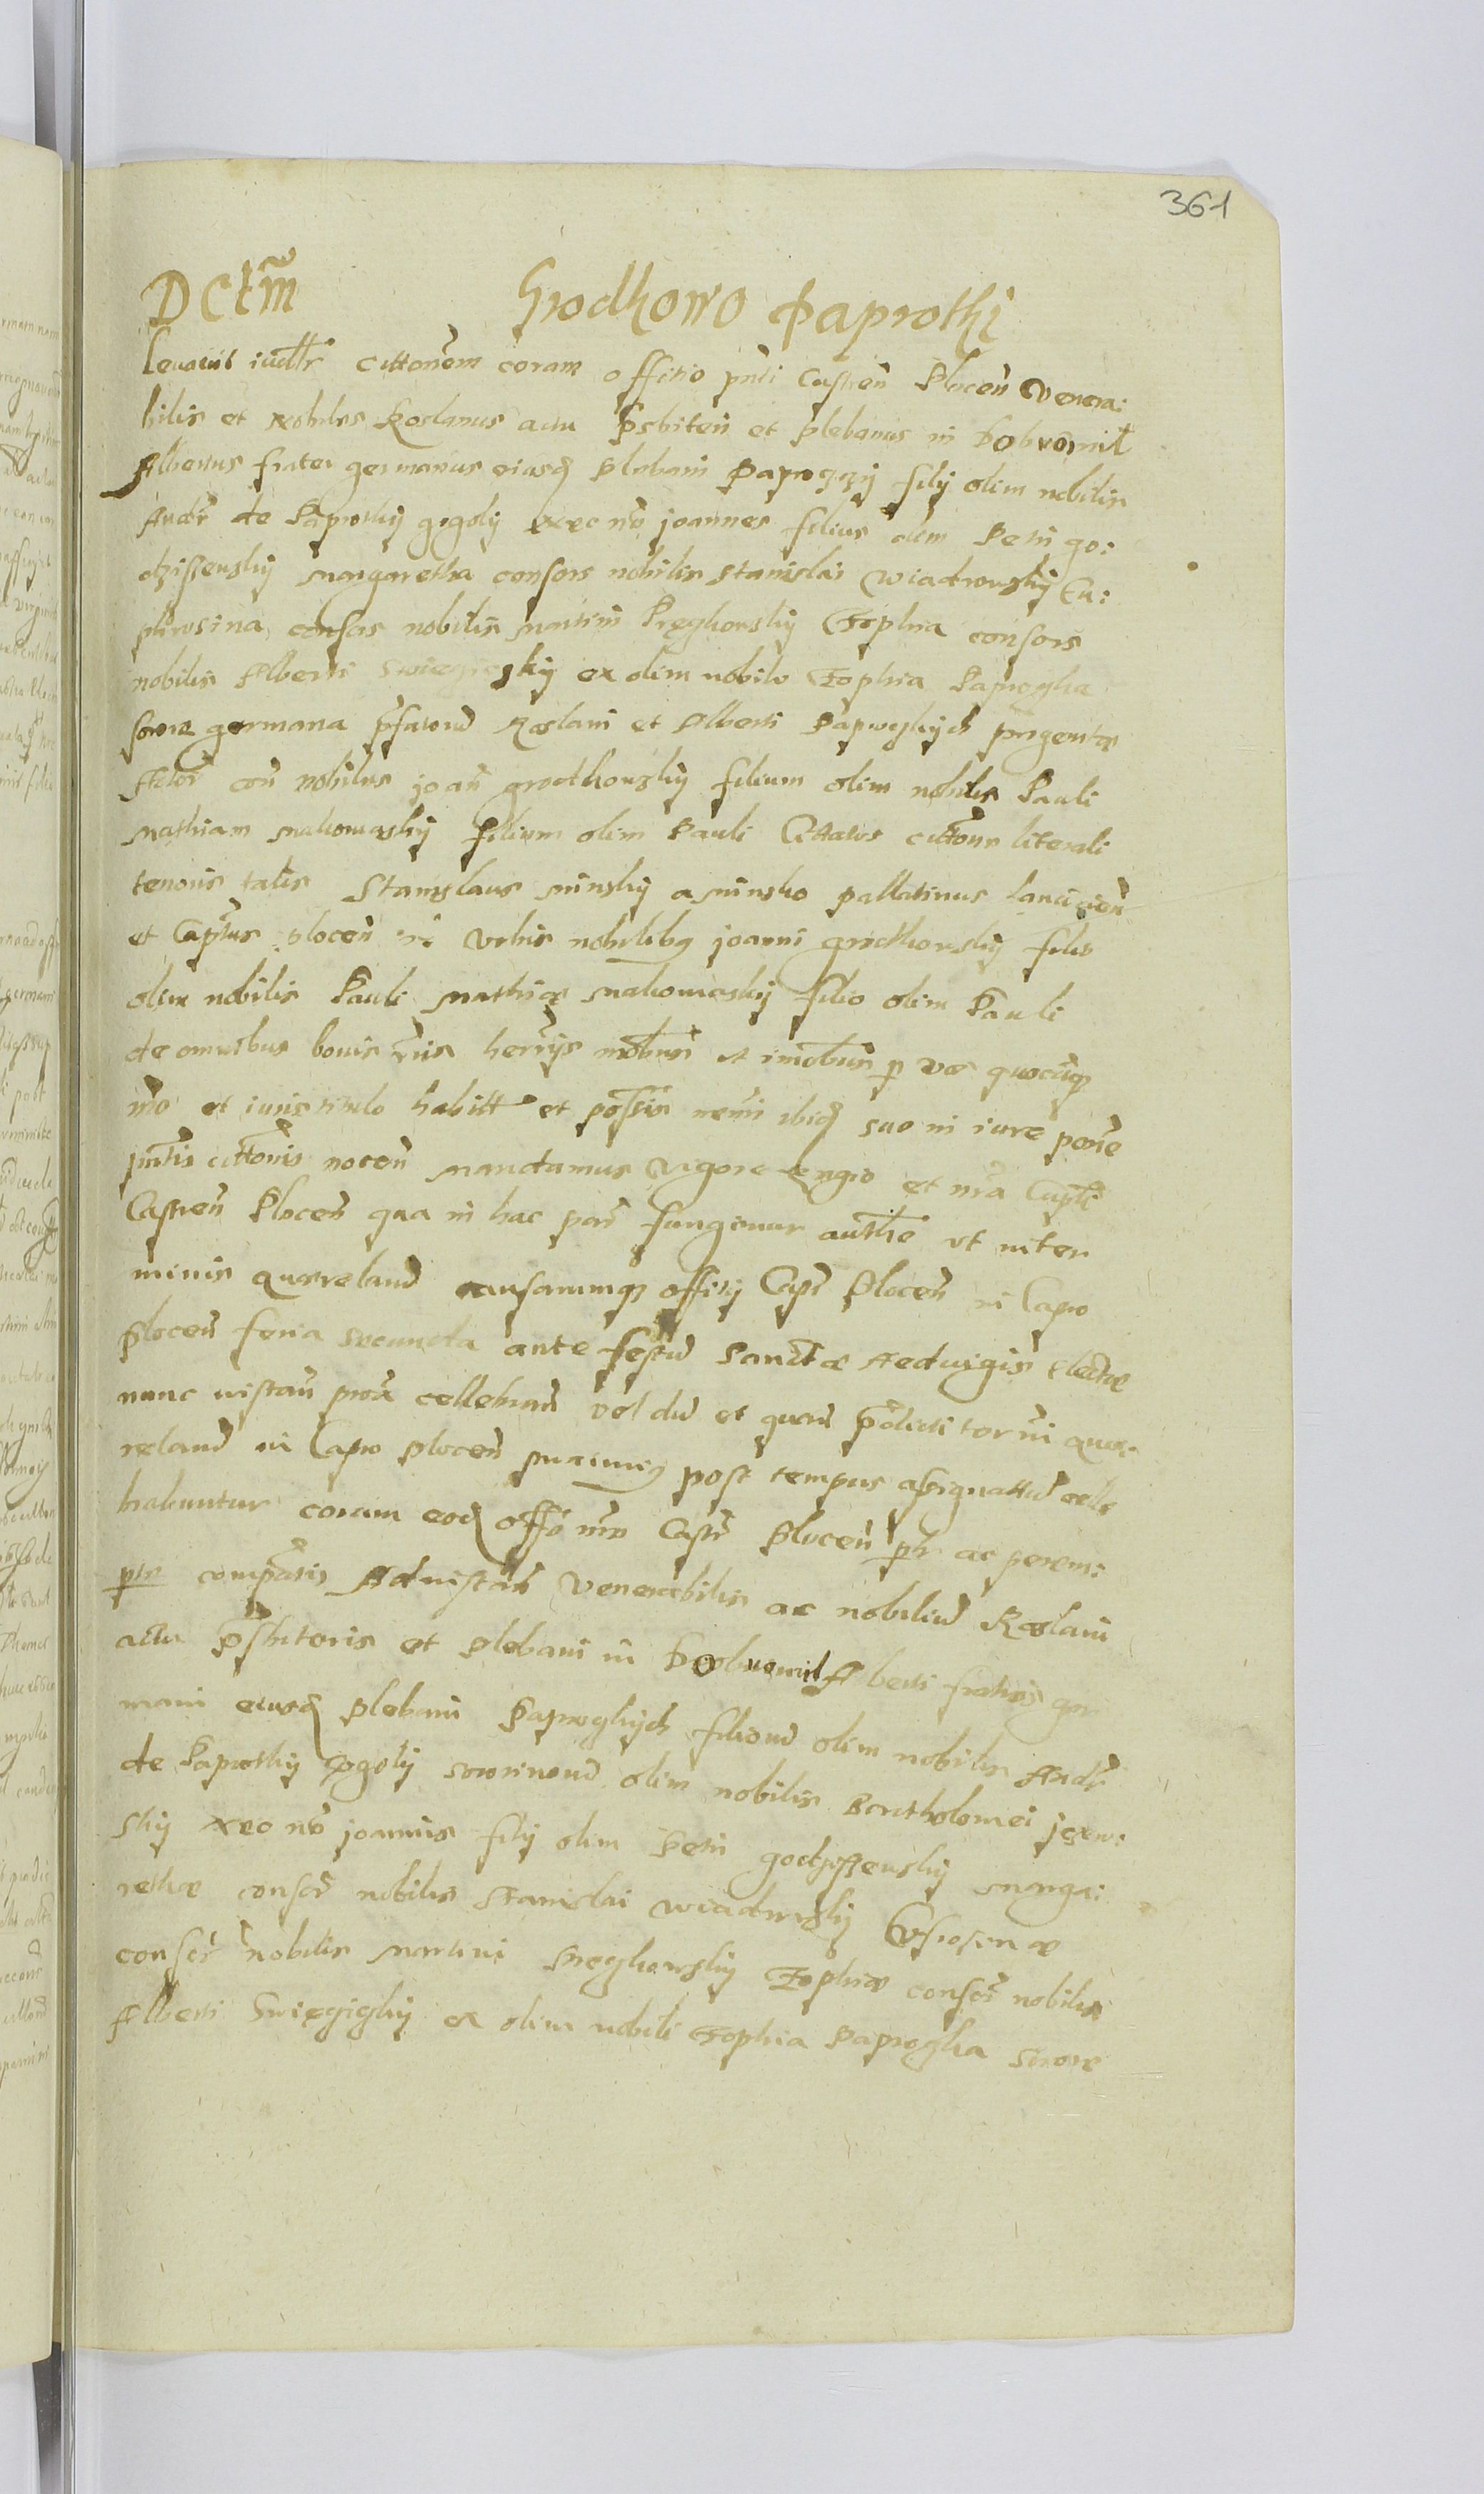 361
DCtm̃ Grodkowo Paprothi
levavit iudłr cittonem coram offitio pnti Castren̄ Plocen̄ Venera:
bilis et nobilis Roslanus actu Psbiteri et plebanus in Dobromil
Albertus frater germanus eiusd plebani Paproczij filij olim nobilis
Andr̄ de Paprothij gogolij nec nō joannes filius olim Petri go:
dzissenskij Margaretha consors nobilis Stanislai Wiadrowskij Eu:
phrosina consors nobilis Martini Pręgkowskij Zophia consors
nobilis Alberti Swięcięskij ex olim nobile Zophia Paprogka
sorore germana p̄fatorud Roslani et Alberti Paprogkijch progenita
Actor̄ con̄ nobiles joan̄ grodkowskij filium olim nobilis Pauli
Mathiam Makomaskij filium olim Pauli Cittatos cittone literali
tenoris talis Stanislaus Minskij a Minsko pallatinus lancicien̄
et Captūs plocen̄ Vobis nobilibq joanni grodkowskij filio
olim nobilis Pauli Mathiæ Makomaskij filio olim Pauli
de omnibus bonis vr̄is herr̄ijs mobus et imobus p vos quocunq
mō et iuris titulo habitt et possis nemi ibid suo in iure pone
pn̄tis cittonis nocen̄ mandamus vigore regio et nr̄a Capli
Castren̄ Plocen̄ qua in hac par̄ fungimur authe ut in ter
minis querelarud causarumq offitij Capt̄ Plocen̄ in Capo
Plocen̄ feria secunda ante festud Sanctæ Hedvigis Electæ
nunc instan̄ prox̄ cellebran̄ vel dud et quan̄ p̄dicti tern̄i quæ:
relarud in Capo Plocen̄ proximiq post tempus assignattud cele
brabuntur coram eod offō nr̄o Castr̄ Plocen̄ plr ac perem:
ptæ comp̄atis Ad instan̄ Venerabilis ac nobiliud Roslani
actu p̄sbiteris et plebani in Dobromil Alberti fratris ger
mani eiusd plebani Paprogkijch filiorud olim nobilis Andr̄
de Paprothij gogolij olim nobilis Bartholomei
skij nec nō joannis filij olim Petri godzissenskij Marga:
rethæ consor̄ nobilis Stanislai Wiadrowskij Eufrosinæ
consor̄ nobilis Martini Pręgkowskij Zophiæ consor̄ nobilis
Alberti Swięcięskij ex olim nobili Zophia Paprogka sorore